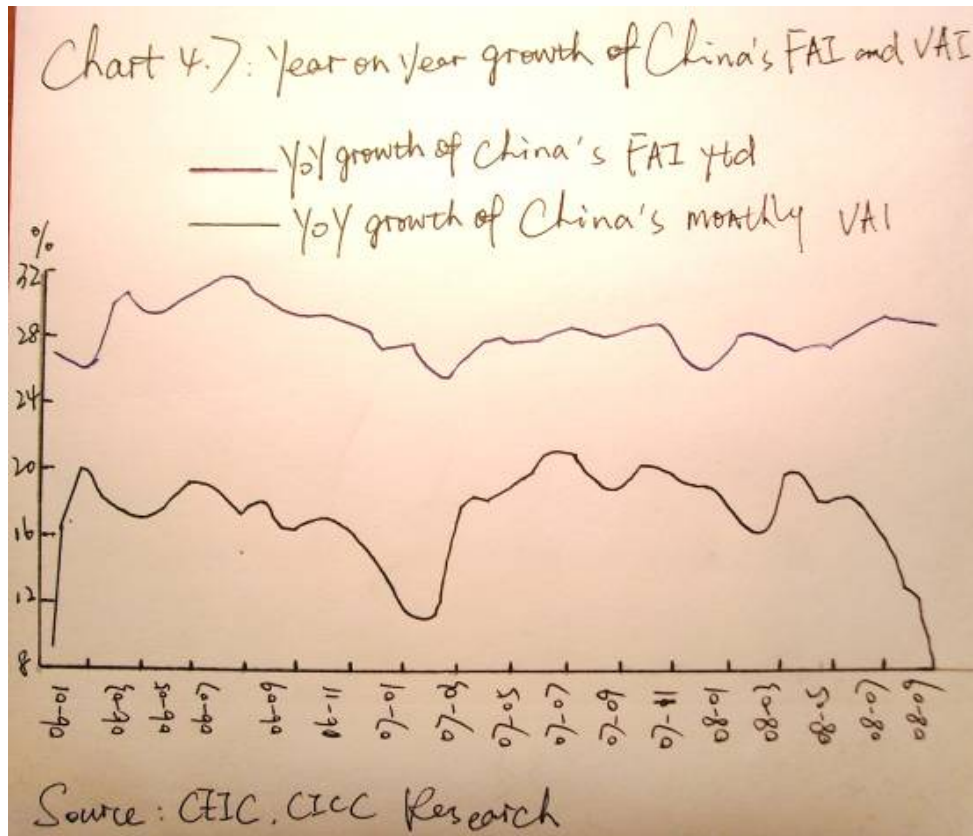 Chart 4.7: Year on Year growth of China's FAI and VAI
YoY growth of China's FAI ytd
YoY growth of China's monthly VAI
%
32
28
24
20
16
12
8
06-01
06-03
06-05
06-07
06-09
06-11
07-01
07-03
07-05
07-07
07-09
07-11
08-01
08-03
08-05
08-07
08-09
Source: CEIC, CICC Research